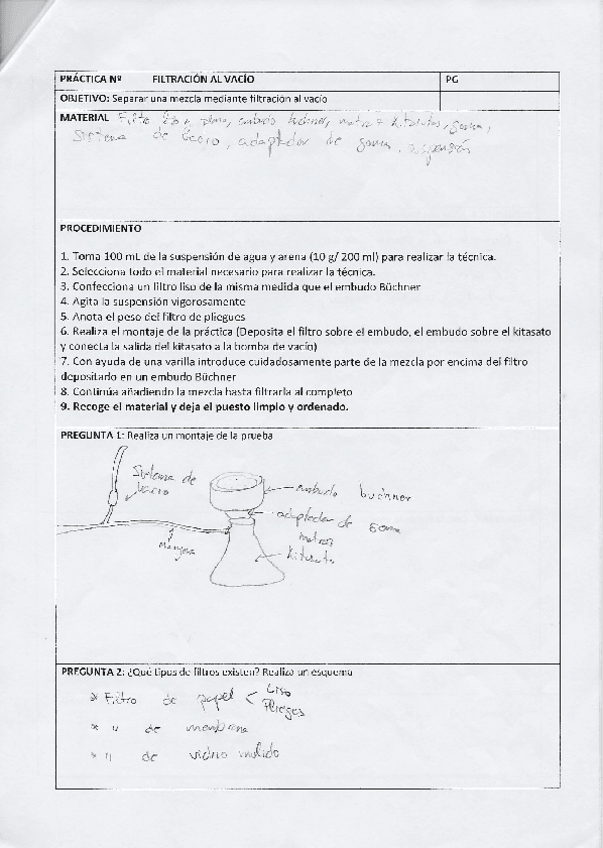 PRÁCTICA Nº FILTRACIÓN AL VACÍO PG
OBJETIVO: Separar una mezcla mediante filtración al vacío
MATERIAL Filtro embudo buchner, matraz kitasatos, goma,
Sistema de vacio, adaptador de goma, suspensión
PROCEDIMIENTO
1. Toma 100 mL de la suspensión de agua y arena (10 g/ 200 ml) para realizar la técnica.
2. Selecciona todo el material necesario para realizar la técnica.
3. Confecciona un filtro liso de la misma medida que el embudo Büchner
4. Agita la suspensión vigorosamente
5. Anota el peso del filtro de pliegues
6. Realiza el montaje de la práctica (Deposita el filtro sobre el embudo, el embudo sobre el kitasato
y conecta la salida del kitasato a la bomba de vacío)
7. Con ayuda de una varilla introduce cuidadosamente parte de la mezcla por encima del filtro
depositado en un embudo Büchner
8. Continúa añadiendo la mezcla hasta filtrarla al completo
9. Recoge el material y deja el puesto limpio y ordenado.
PREGUNTA 1: Realiza un montaje de la prueba
Sistema de
vacio
embudo buchner
adaptador de goma
matraz
Kitasato
PREGUNTA 2: ¿Qué tipos de filtros existen? Realiza un esquema
* Filtro de papel < Liso
Plieges
* " de membrana
* " de vidrio molido